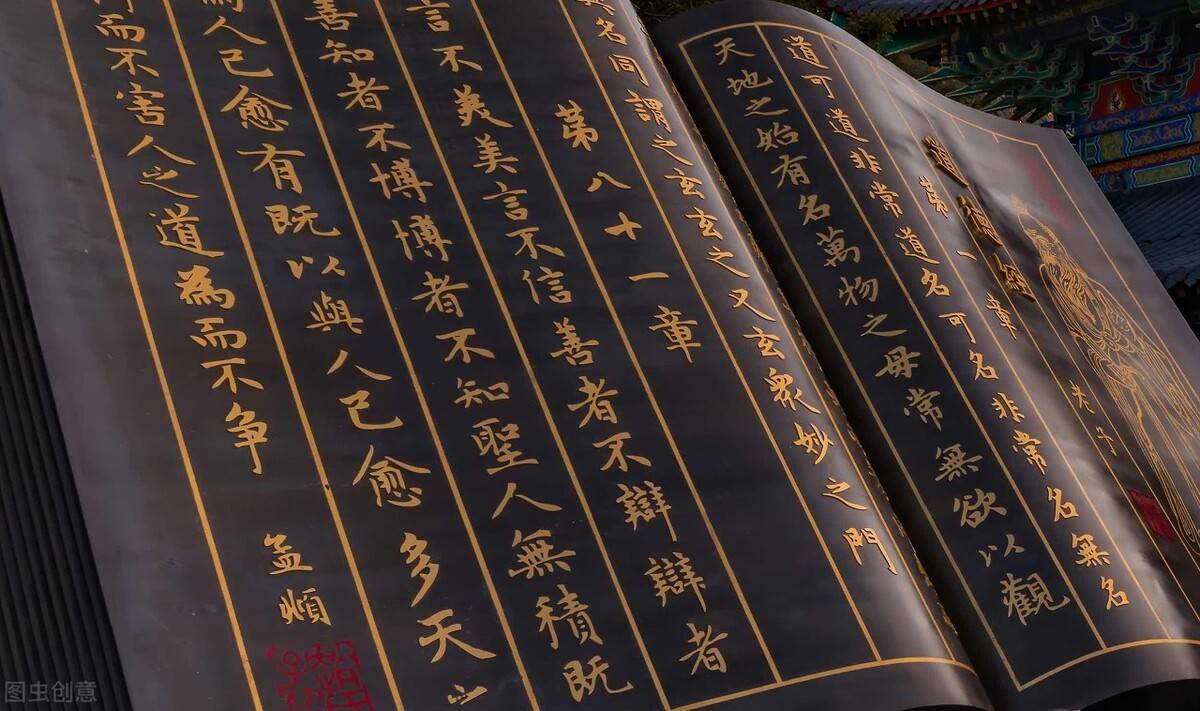 道德經
老子
第一章
道可道非常道名可名非常名無名
天地之始有名萬物之毋常無欲以觀
名同謂之玄玄之又玄衆妙之門
第八十一章
言不羙美言不信善者不辯辯者
善知者不博博者不知聖人無積既
為人己愈有既以與人己愈多天之
而不害人之道為而不争
孟頫
图虫创意